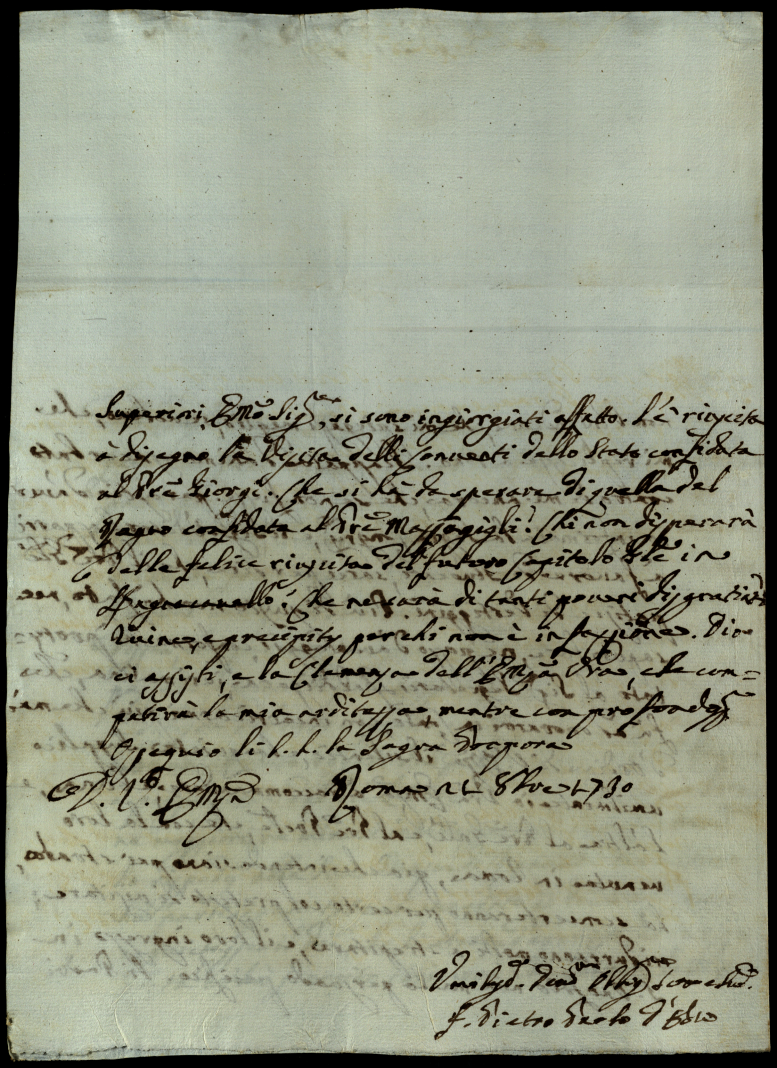 Superiori, Emõ Sig.re, si sono ingiorgiati affatto. S'è riuscita
a disegno la Visita delli Conventi dello Stato confidata
al Prẽ Giorgi. Che si hà da sperare di quella del
Regno confidata al Prẽ Massagigli? Chi non disperarà
della felice riuscita del futuro Capitolo Glẽ in
Che ne sarà di tanti poveri disgraziati
Ruine, e precipitij perchi non è in fazzione. Dio
ci assisti, e la Clemenza dell'Emza Vrã, che com=
patirà la mia arditezza, mentre con profondo
Ossequio li b. b. la Sagra Porpora
D. V. Emza Roma 21 8bre 1730
Umiliss. Devmo Obligo Servo
f. Pietro Paolo d'